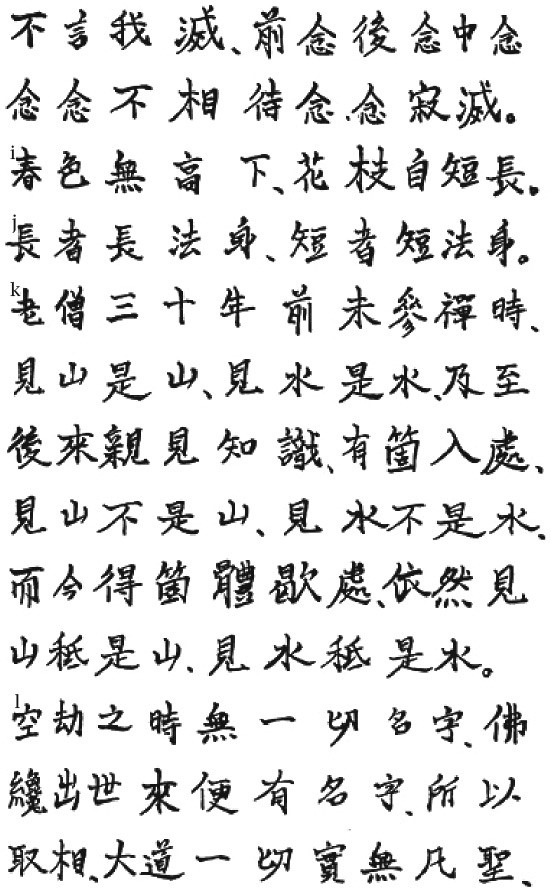 不言我滅、前念後念中念
念念不相待念念寂滅。
i春色無高下、花枝自短長。
j長者長法身、短者短法身。
k老僧三十年前未參禪時、
見山是山、見水是水、乃至
後來親見知識、有箇入處、
見山不是山、見水不是水、
而今得箇體歇處、依然見
山秪是山、見水秪是水。
l空劫之時無一切名字、佛
纔出世來便有名字、所以
取相、大道一切實無凡聖、